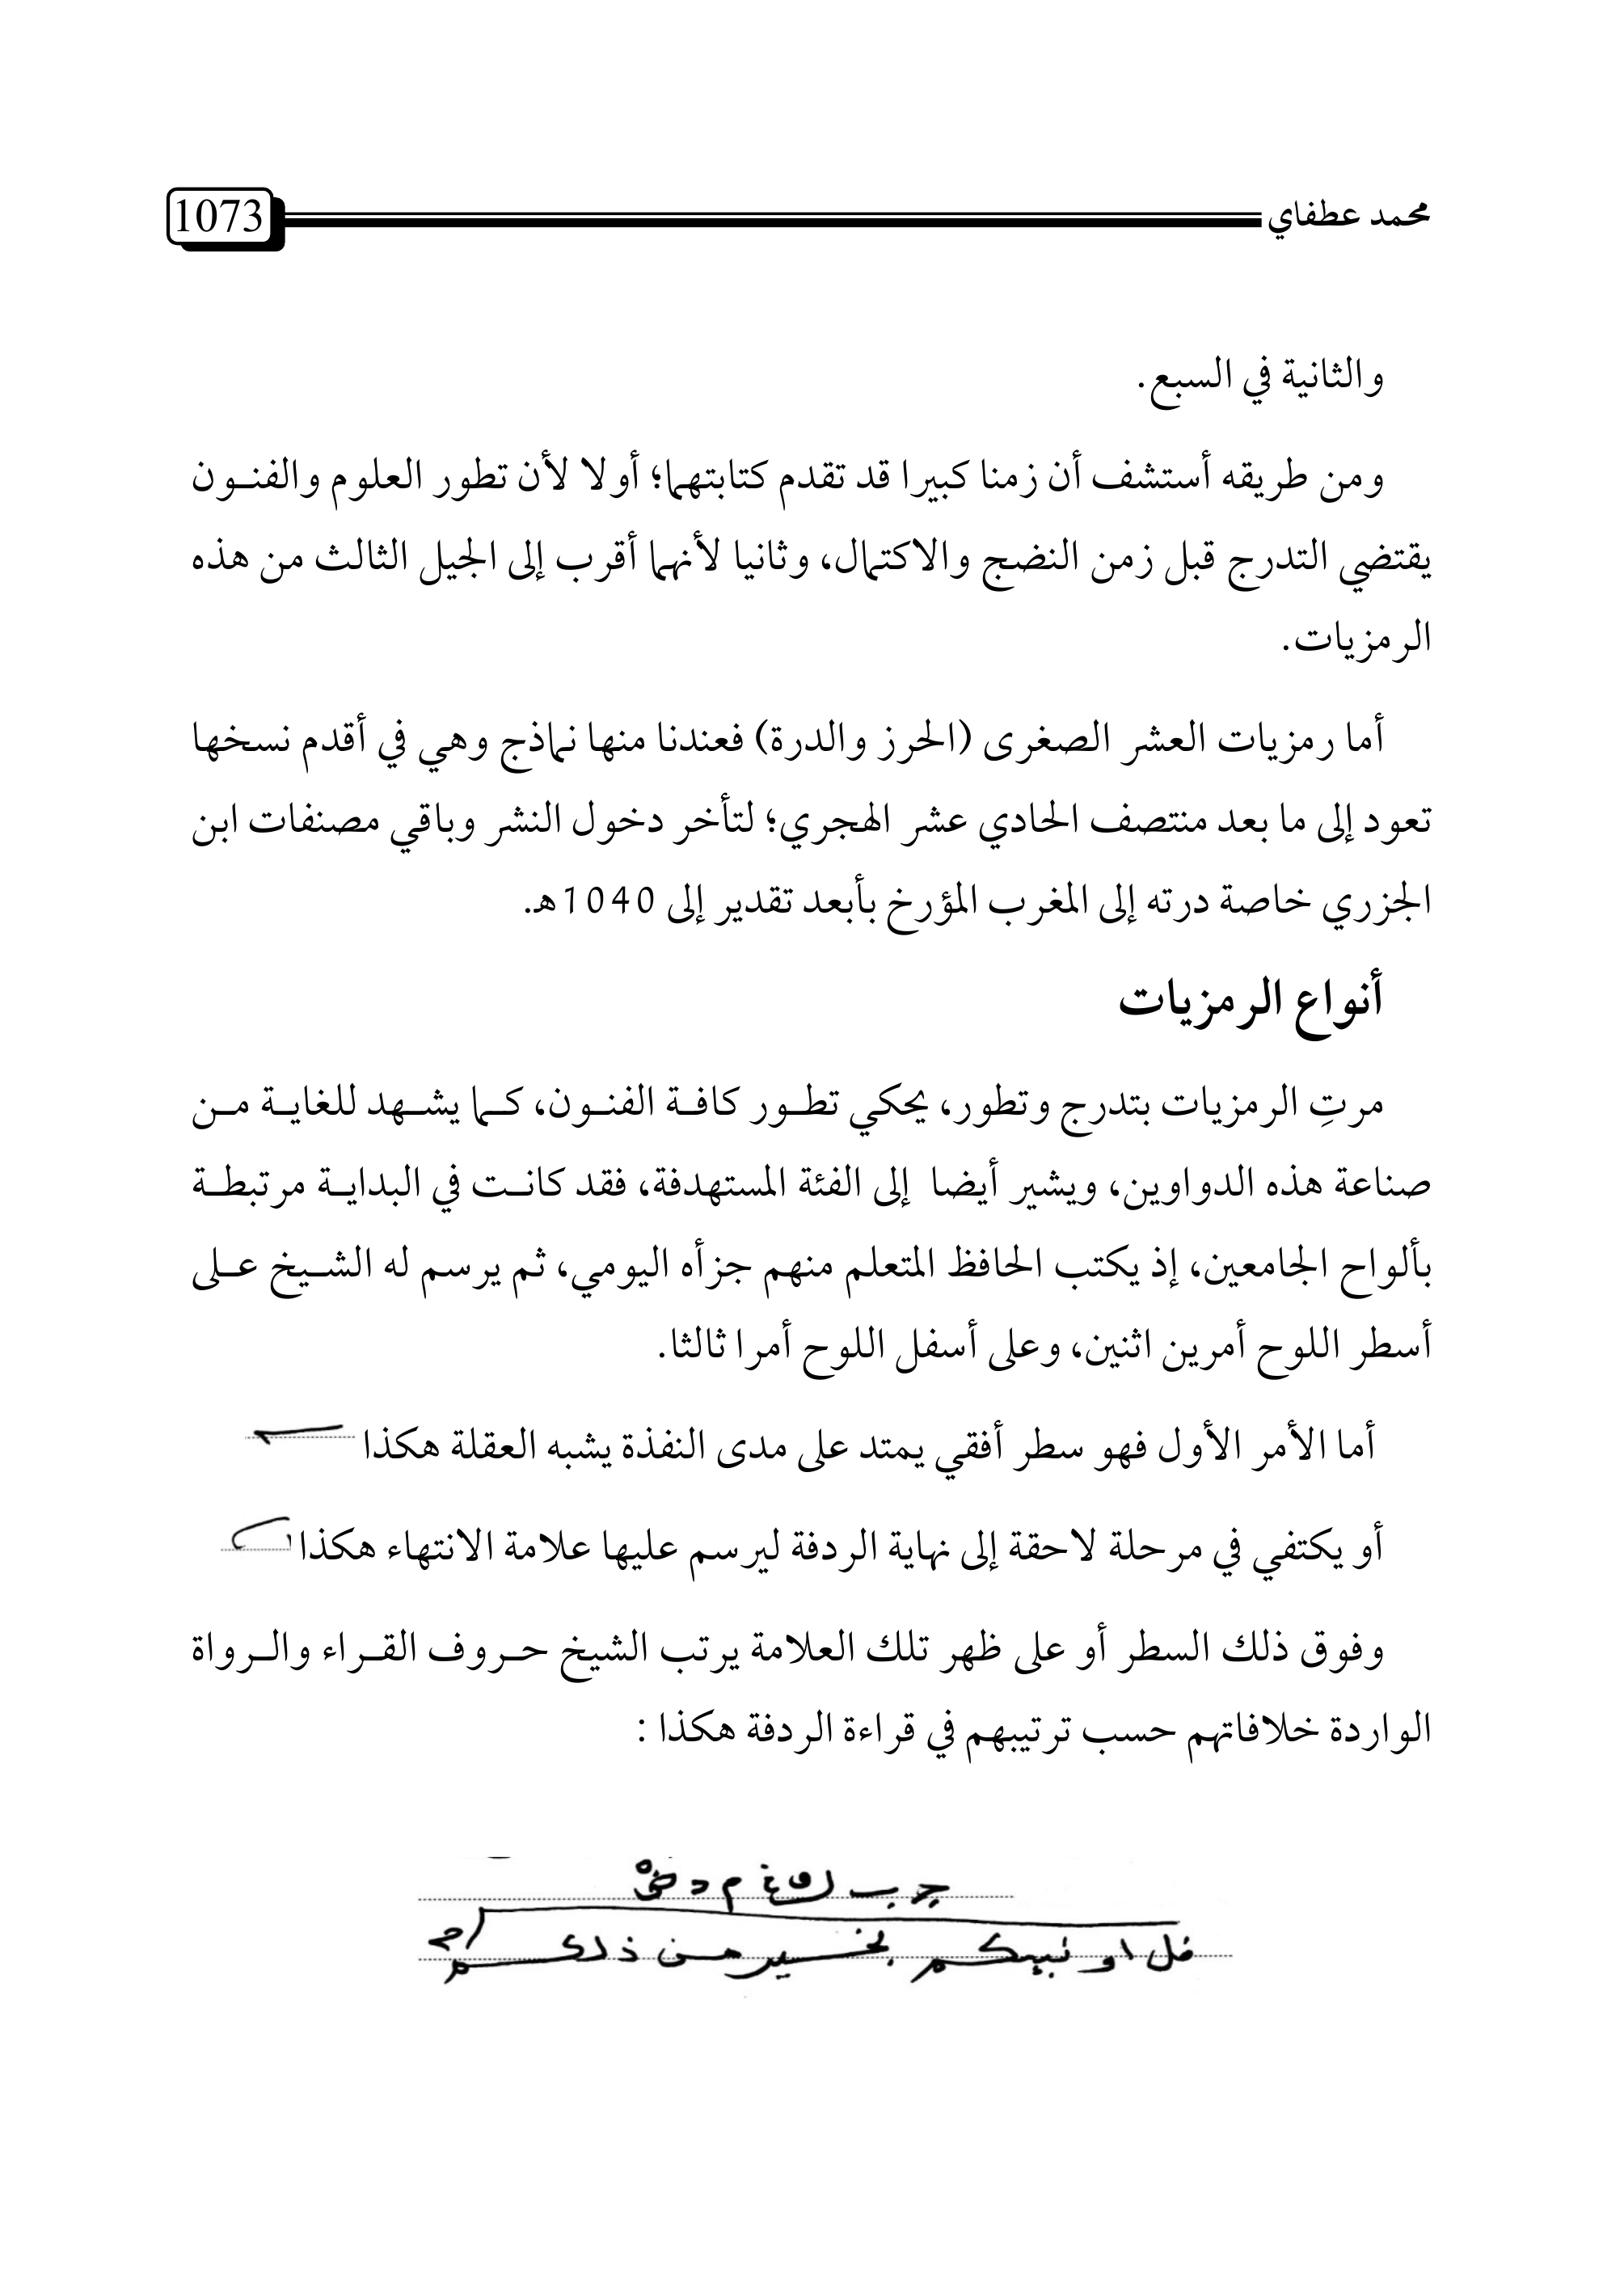 محمد عطفاي
1073
والثانية في السبع.
ومن طريقه أستشف أن زمنا كبيرا قد تقدم كتابتهما؛ أولا لأن تطور العلوم والفنـون
يقتضي التدرج قبل زمن النضج والاكتمال، وثانيا لأنهما أقرب إلى الجيل الثالث من هذه
الرمزيات.
أما رمزيات العشر الصغرى (الحرز والدرة) فعندنا منها نماذج وهي في أقدم نسخها
تعود إلى ما بعد منتصف الحادي عشر الهجري؛ لتأخر دخول النشر وباقي مصنفات ابن
الجزري خاصة درته إلى المغرب المؤرخ بأبعد تقدير إلى 1040هـ.
أنواع الرمزيات
مرتِ الرمزيات بتدرج وتطور، يحكي تطـور كافـة الفنـون، كـما يشـهد للغايـة مـن
صناعة هذه الدواوين، ويشير أيضا إلى الفئة المستهدفة، فقد كانـت في البدايـة مرتبطـة
بألواح الجامعين، إذ يكتب الحافظ المتعلم منهم جزأه اليومي، ثم يرسم له الشـيخ عـلى
أسطر اللوح أمرين اثنين، وعلى أسفل اللوح أمرا ثالثا.
أما الأمر الأول فهو سطر أفقي يمتد على مدى النفذة يشبه العقلة هكذا
أو يكتفي في مرحلة لاحقة إلى نهاية الردفة ليرسم عليها علامة الانتهاء هكذا
وفوق ذلك السطر أو على ظهر تلك العلامة يرتب الشيخ حـروف القـراء والـرواة
الواردة خلافاتهم حسب ترتيبهم في قراءة الردفة هكذا :
فل او نبيكم بخير من ذلكم